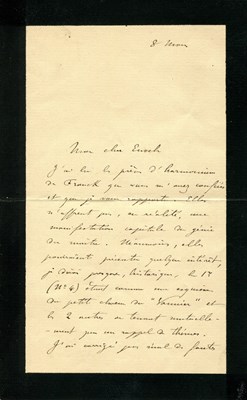 8 Mars
Mon cher Enoch
J'ai lu les pièces d'harmonium
de Franck que vous m'avez confiées
et que je vous rapporte. Elles
n'offrent pas, en réalité, une
manifestation capitale du génie
du maître. Néanmoins, elles
pourraient présenter quelque intérêt,
je dirai presque, historique, la 1re
(No 4) étant comme une esquisse
du petit chœur de " " et
les 2 autres se tenant mutuelle-
-ment par un rappel de thèmes.
J'ai corrigé pas mal de fautes